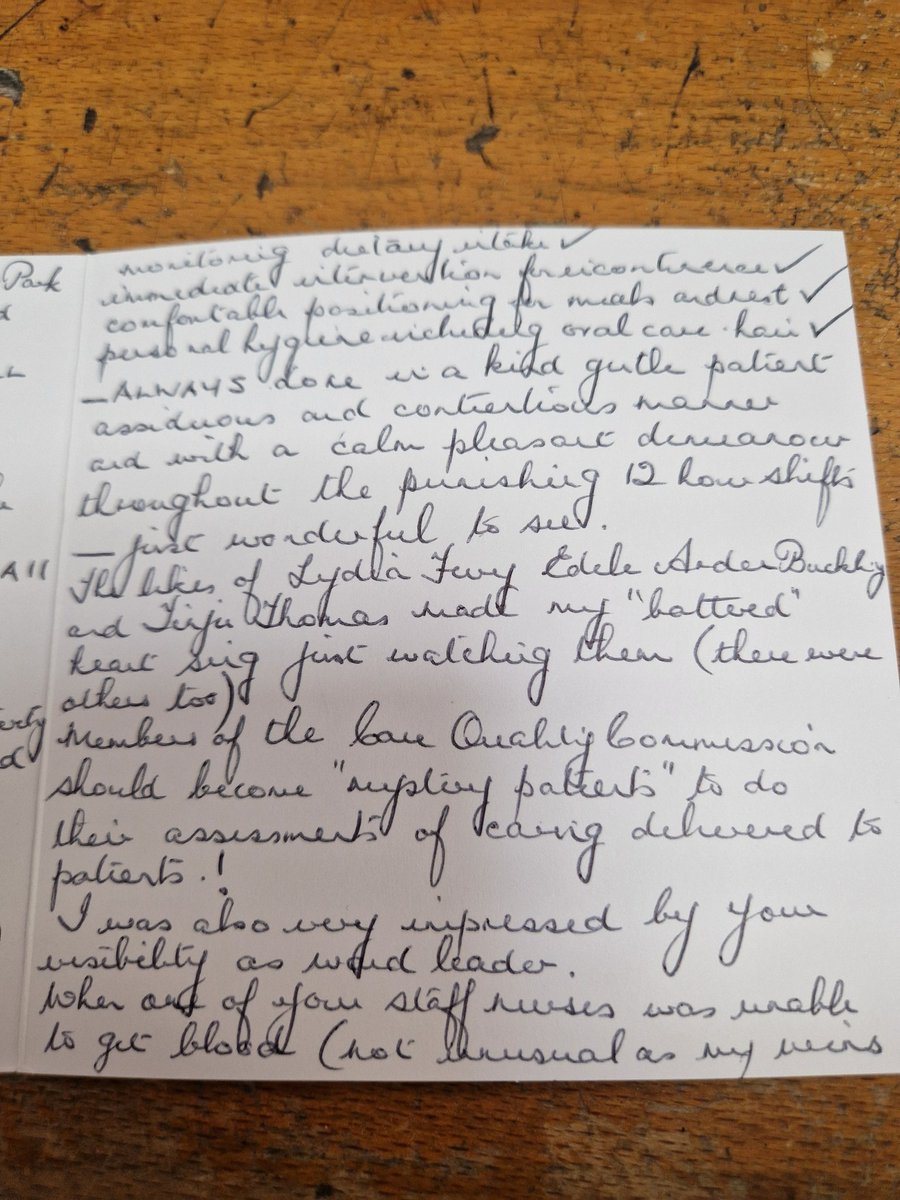 Park
monitoring dietary intake ✓
immediate intervention for incontinence ✓
comfortable positioning for meals and rest ✓
personal hygiene including oral care. hair ✓
— ALWAYS done in a kind gentle patient
assiduous and contientious manner
and with a calm pleasant demeanour
throughout the punishing 12 hour shifts
— just wonderful to see.
The likes of Lydia Edele
and Thomas made my "battered"
heart sing just watching them (there were
others too)
Members of the Care Quality Commission
should become "mystery patients" to do
their assessments of caring delivered to
patients.!
I was also very impressed by your
visibility as ward leader.
When one of your staff nurses was unable
to get blood (not unusual as my veins